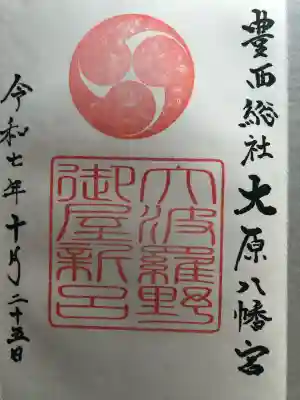 豊西総社 大原八幡宮
大波羅野
御屋新邑
令和七年十月二十五日